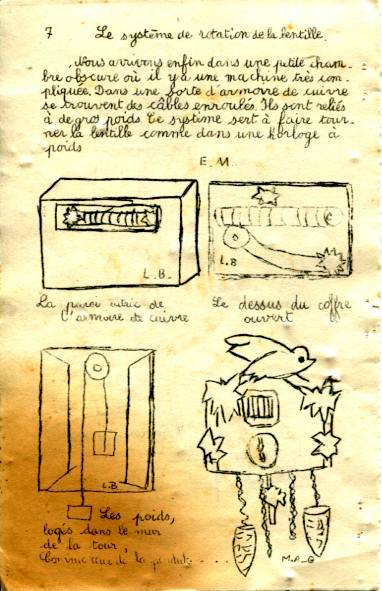 7 Le système de rotation de la lentille.
Nous arrivons enfin dans une petite cham-
bre obscure où il y a une machine très com-
pliquée. Dans une sorte d'armoire de cuivre
se trouvent des câbles enroulés. Ils sont reliés
à de gros poids. Ce système sert à faire tour-
ner la lentille comme dans une horloge à
poids
E. M.
L. B.
L. B
La paroi de
l'armoire de cuivre
Le dessus du coffre
ouvert
L. B
Les poids,
logés dans le mur
de la tour,
de la
M. A. G